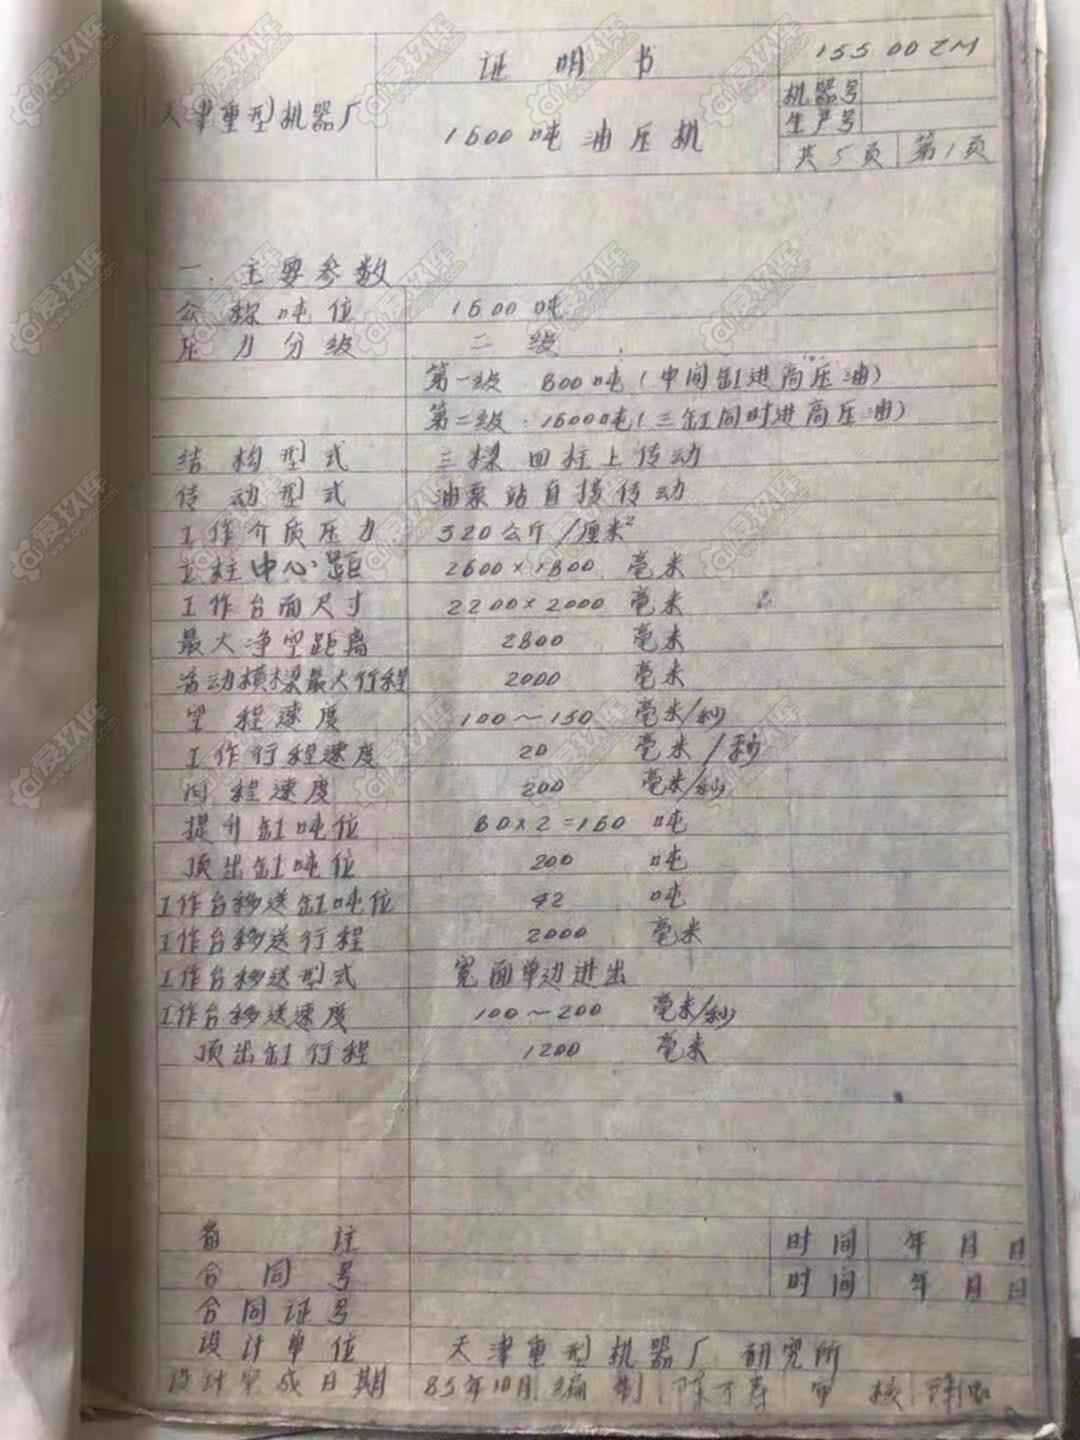 天津重型机器厂
证明书
1600吨油压机
155 00ZM
机器号
生产号
共5页 第1页
一.主要参数
公称吨位 1600吨
压力分级 二级
第一级 800吨(中间缸进高压油)
第二级.1600吨(三缸同时进高压油)
结构型式 三樑四柱上传动
传动型式 油泵站直接传动
工作介质压力 320公斤/厘米²
立柱中心距 2600×1800 毫米
工作台面尺寸 2200×2000 毫米
最大净空距离 2800 毫米
活动横樑最大行程 2000 毫米
空程速度 100~150 毫米/秒
工作行程速度 20 毫米/秒
回程速度 200 毫米/秒
提升缸吨位 80×2=160 吨
顶出缸吨位 200 吨
工作台移送缸吨位 42 吨
工作台移送行程 2000 毫米
工作台移送型式 宽面单边进出
工作台移送速度 100~200 毫米/秒
顶出缸行程 1200 毫米
备注 时间 年月日
合同号 时间 年月日
合同证号
设计单位 天津重型机器厂 研究所
设计完成日期 85年10月 编制 陈 审核
爱玖库
www.aijiuku.com